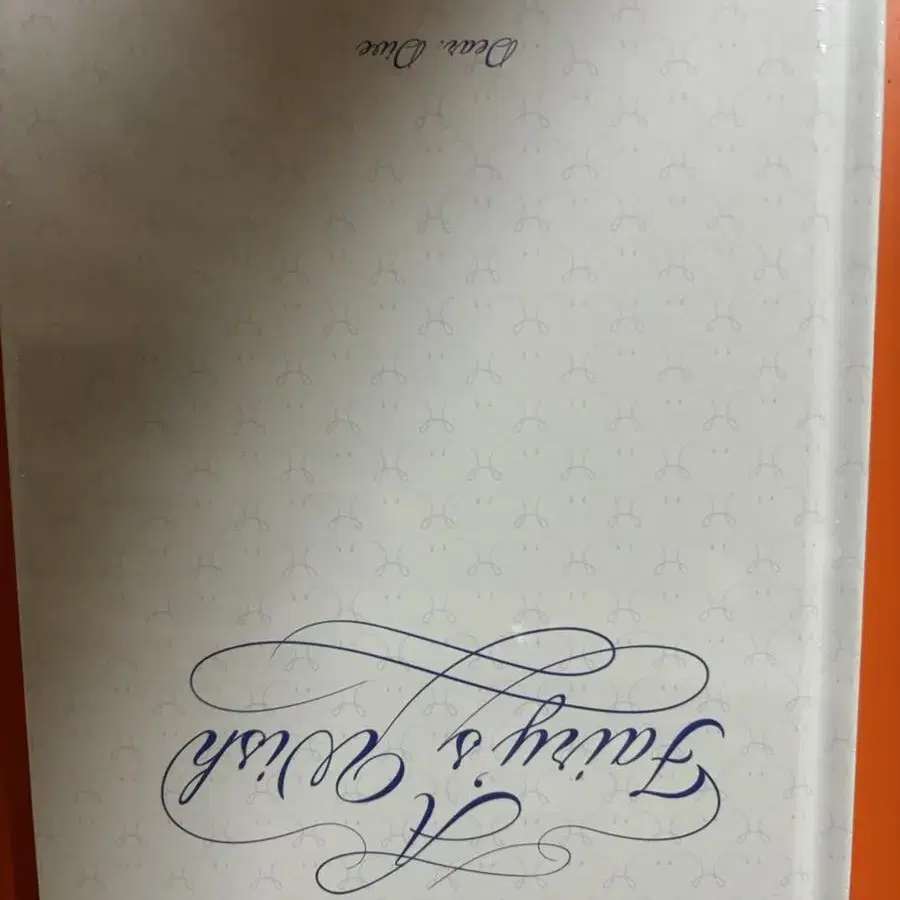 A
Fairy's Wish
Dear. Dive